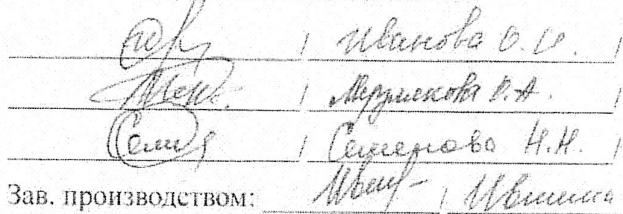 / Иванова О.Ю. /
/ Мерзлякова О.А. /
/ Семенова Н.Н. /
Зав. производством: / Ившина